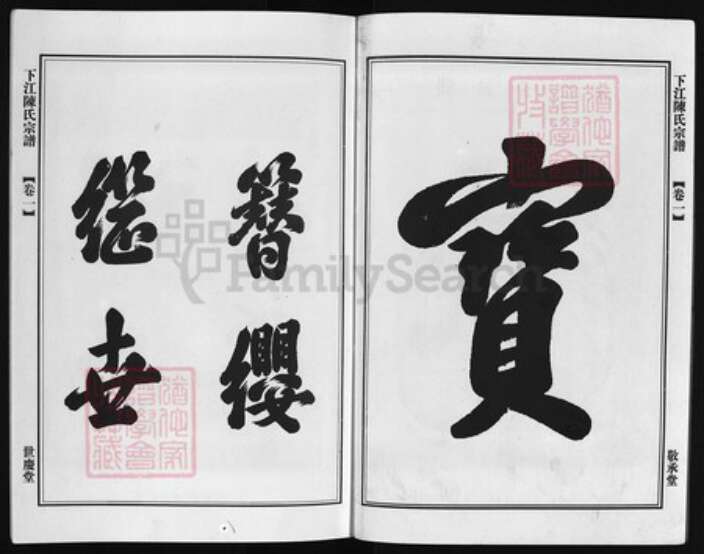 下江陳氏宗譜
【卷一】
敬承堂
寶
簪纓
繼世
下江陳氏宗譜
【卷一】
世慶堂
FamilySearch